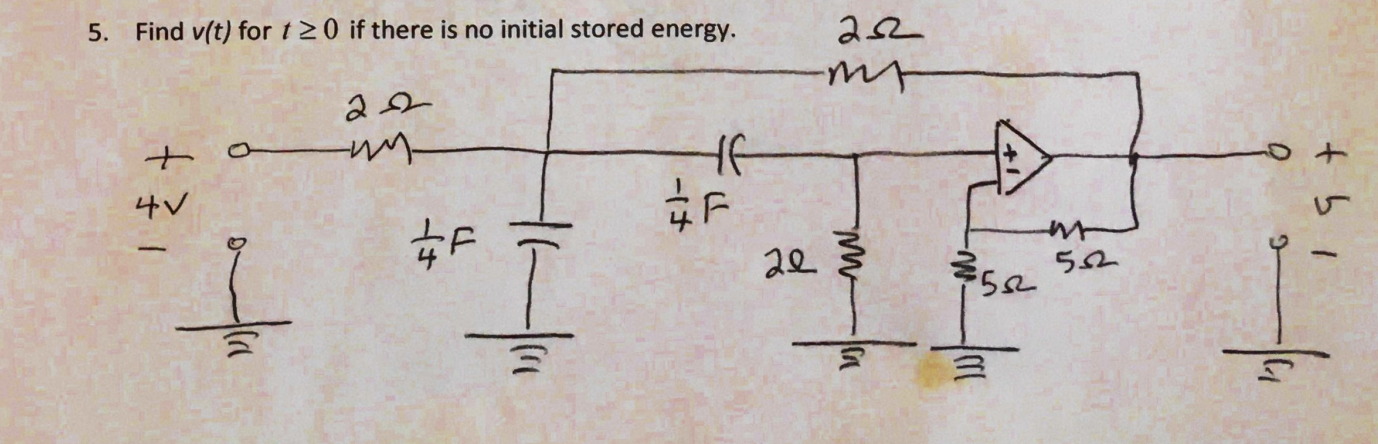 5. Find v(t) for t ≥ 0 if there is no initial stored energy.
2Ω
2Ω
+
4V
-
1/4 F
1/4 F
2Ω
+
-
5Ω
5Ω
+
v
-